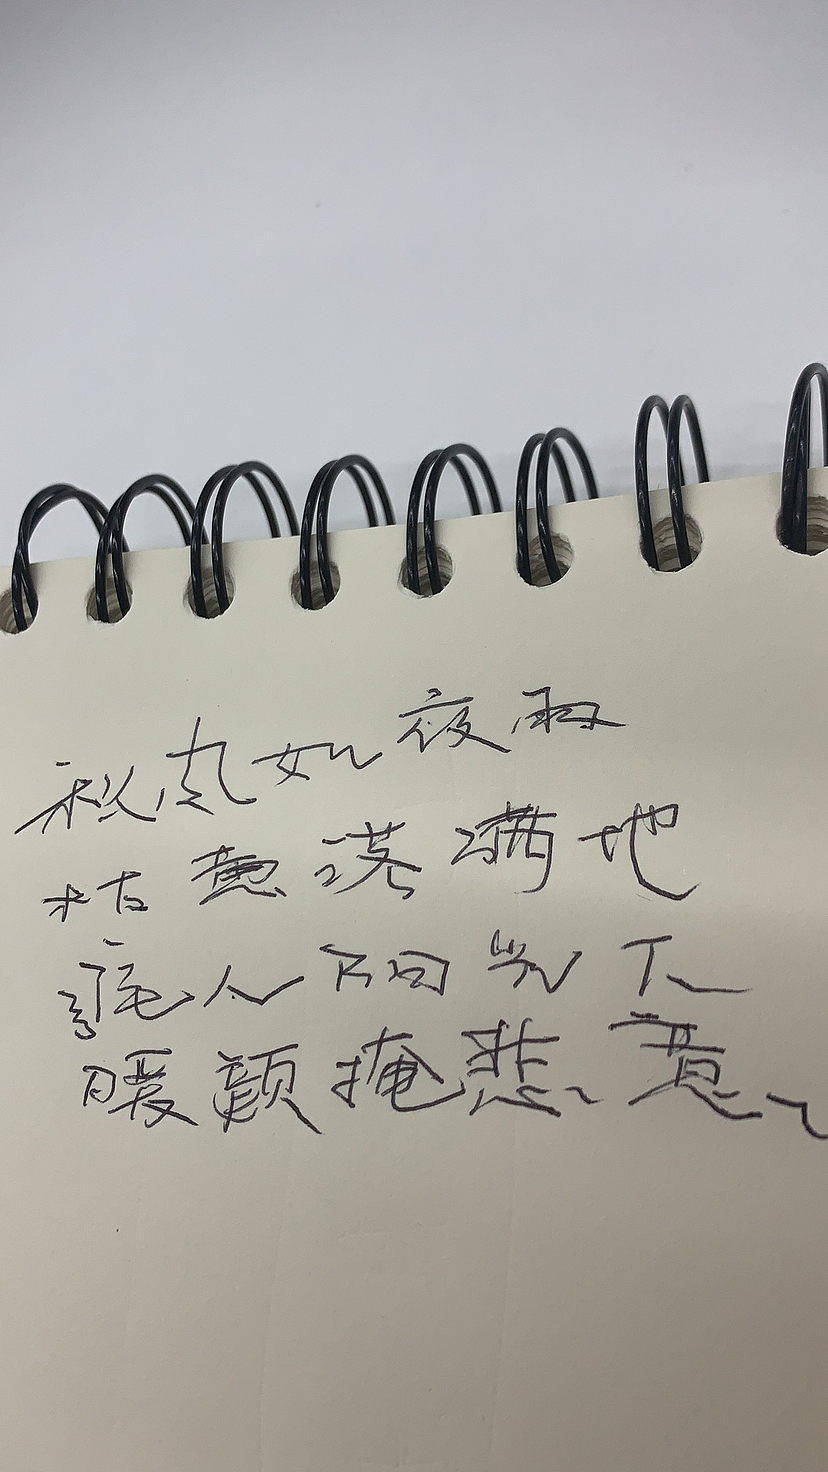 秋风如夜雨
枯黄落满地
诧人阳光下
暖颜掩悲意